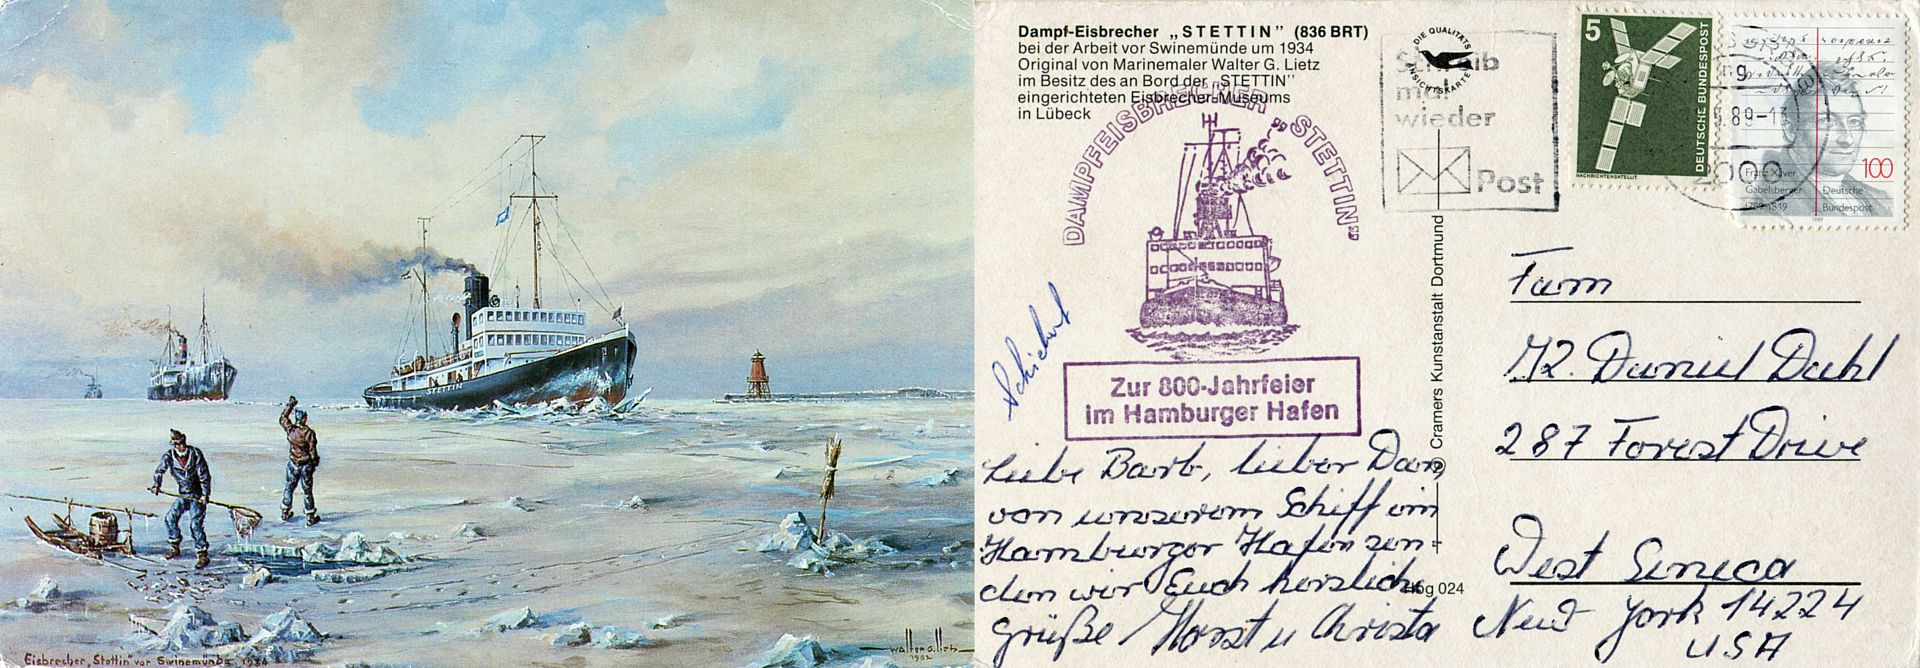 Eisbrecher „Stettin" vor Swinemünde 1934
Walter G. Lietz
1982
Dampf-Eisbrecher „STETTIN" (836 BRT)
bei der Arbeit vor Swinemünde um 1934
Original von Marinemaler Walter G. Lietz
im Besitz des an Bord der „STETTIN"
eingerichteten Eisbrecher-Museums
in Lübeck
DIE QUALITÄTS
ANSICHTSKARTE
DAMPFEISBRECHER „STETTIN"
Zur 800-Jahrfeier
im Hamburger Hafen
Schreib
mal
wieder
Post
5
DEUTSCHE BUNDESPOST
NACHRICHTENSATELLIT
.89-1
2000
100
Franz Xaver
Gabelsberger
1789-1849
Deutsche
Bundespost
1989
Cramers Kunstanstalt Dortmund
Hbg 024
Liebe Barb, lieber Dan,
von unserem Schiff im
Hamburger Hafen sen-
den wir Euch herzliche
Grüße Horst u Christa
Fam
M2. Daniel Dahl
287 Forest Drive
West Seneca
New York 14224
USA